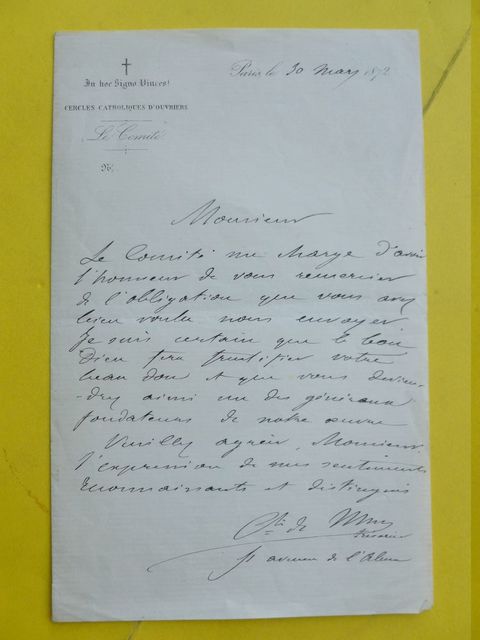 In hoc Signo Vinces!
CERCLES CATHOLIQUES D'OUVRIERS
Le Comité
N.
Paris, le 30 mars 1872
Monsieur
Le Comité me charge d'avoir
l'honneur de vous remercier
de l'obligation que vous avez
bien voulu nous envoyer
Je suis certain que le bon
Dieu fera fructifier votre
beau don et que vous devien-
-drez ainsi un des généraux
fondateurs de notre œuvre
Veuillez agréer, Monsieur,
l'expression de mes sentiments
reconnaissants et distingués
Cte de Mun
avenue de l'Alma